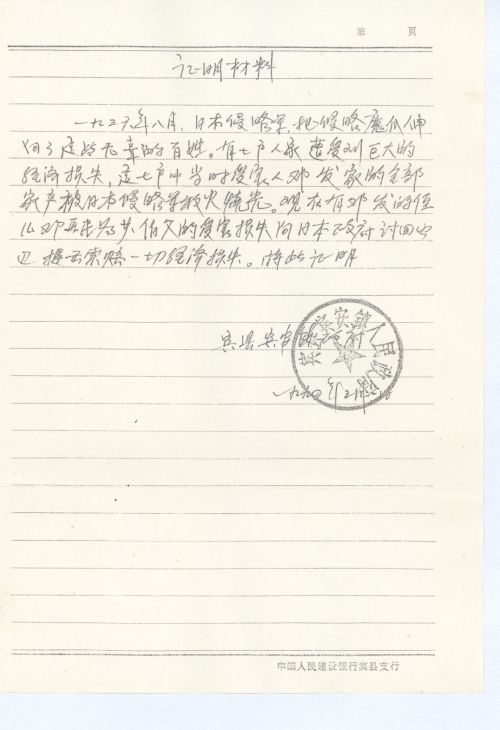 第 页
证明材料
一九三六年八月,日本侵略军,把侵略魔爪伸
向了这些无辜的百姓。有七户人家遭受到巨大的
经济损失,这七户中当时受害人邓发家的全部
家产被日本侵略军放火烧光。现在有邓发的侄
儿邓 为其伯父的受害损失向日本政府讨回公
道 提出索赔一切经济损失。特此证明
宾县宾安镇政府
宾县宾安镇人民政府
一九九〇年2月
中国人民建设银行宾县支行